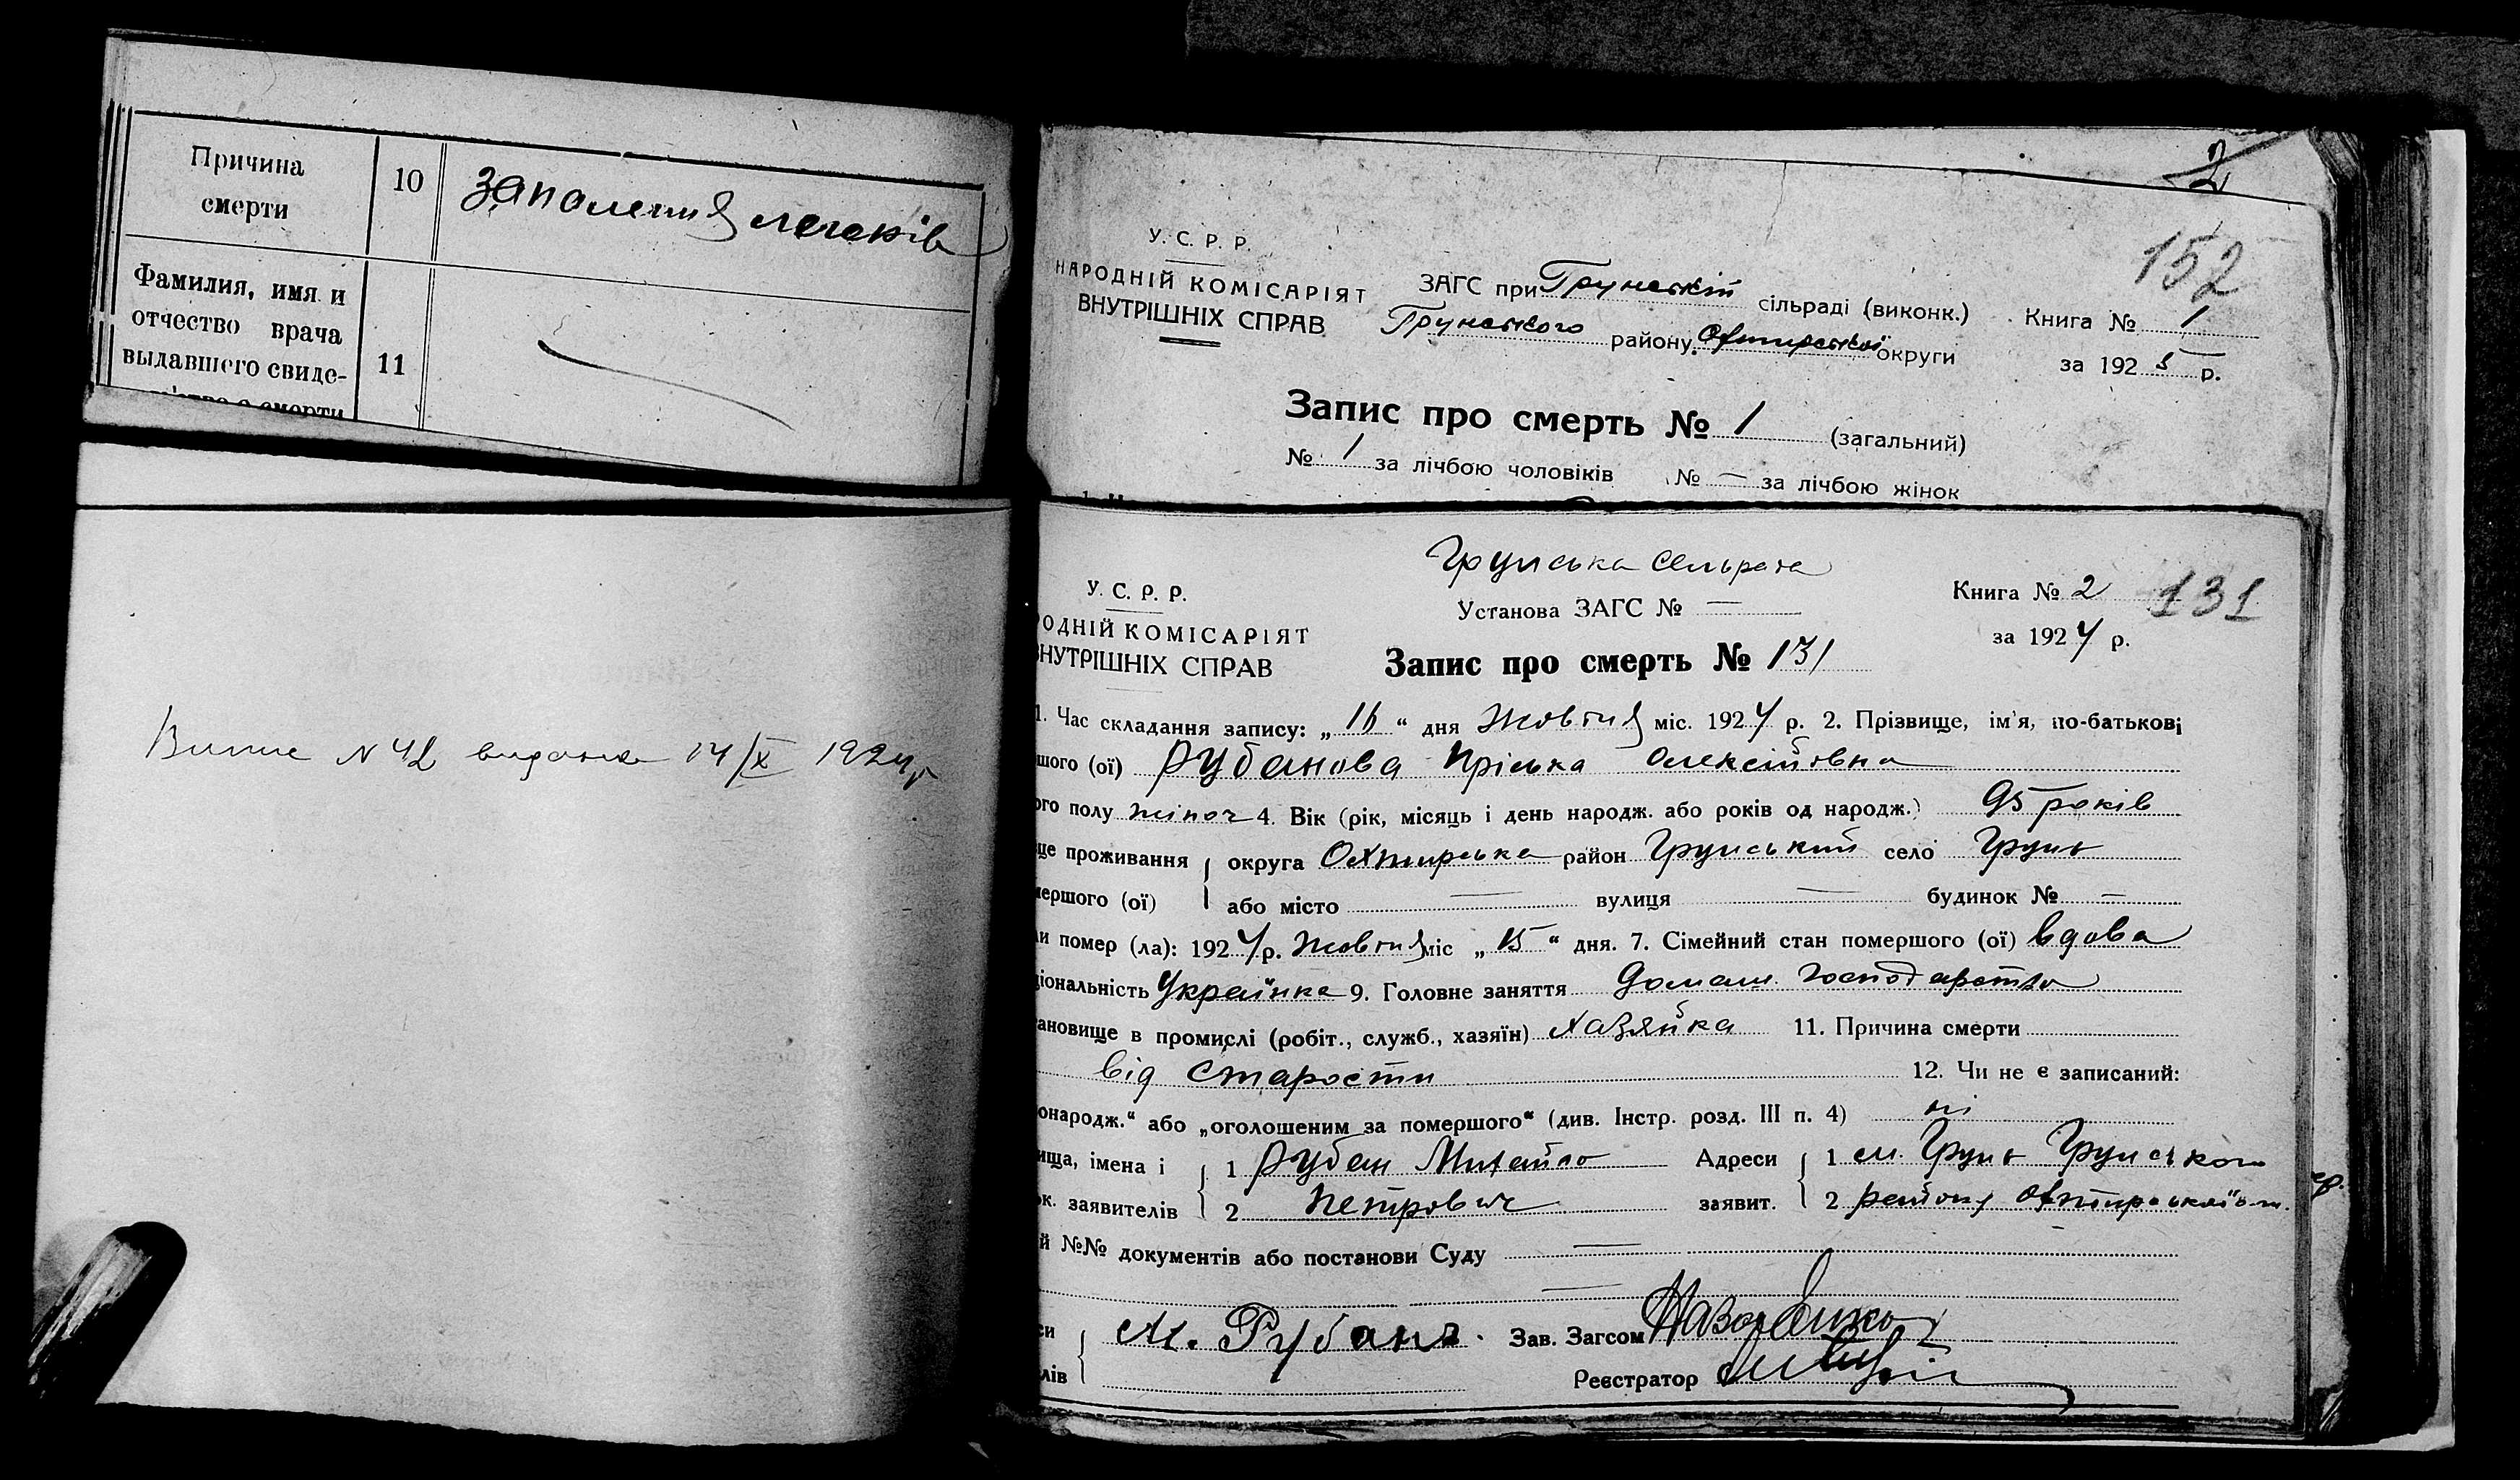 Причина
смерти
10
запалення легенів
Фамилия, имя и
отчество врача
выдавшего свиде-
11
2
152
У. С. Р. Р.
НАРОДНІЙ КОМІСАРІЯТ
ВНУТРІШНІХ СПРАВ
ЗАГС при Грунській сільраді (виконк.)
Грунського району Охтирської округи
Книга № 1
за 1925 р.
Запис про смерть № 1 (загальний)
№ 1 за лічбою чоловіків № — за лічбою жінок
Грунська сельрада
У. С. Р. Р.
ОДНІЙ КОМІСАРІЯТ
ВНУТРІШНІХ СПРАВ
Установа ЗАГС № —
Книга № 2
131
за 1924 р.
Запис про смерть № 131
1. Час складання запису: „16“ дня Жовтня міс. 1924 р. 2. Прізвище, ім'я, по-батькові
шого (ої) Рубанова Пріська Олексіївна
ого полу жіноч 4. Вік (рік, місяць і день народж. або років од народж.) 95 років
це проживання округа Охтирська район Грунський село Грунь
мершого (ої) або місто — вулиця — будинок № —
и помер (ла): 1924 р. Жовтня міс „15“ дня. 7. Сімейний стан помершого (ої) вдова
ціональність Українка 9. Головне заняття домаш. господарство
ановище в промислі (робіт., служб., хазяїн) хазяйка 11. Причина смерти
від старости 12. Чи не є записаний:
онародж.“ або „оголошеним за помершого“ (див. Інстр. розд. III п. 4) ні
ища, імена і 1 Рубан Михайло Адреси 1 м. Грунь Грунського
ок. заявителів 2 Петрович заявит. 2 району Охтирської
й №№ документів або постанови Суду —
—
си М. Рубанъ. Зав. Загсом
лів Реєстратор
Випис N 42 видана 17/X 1924 р